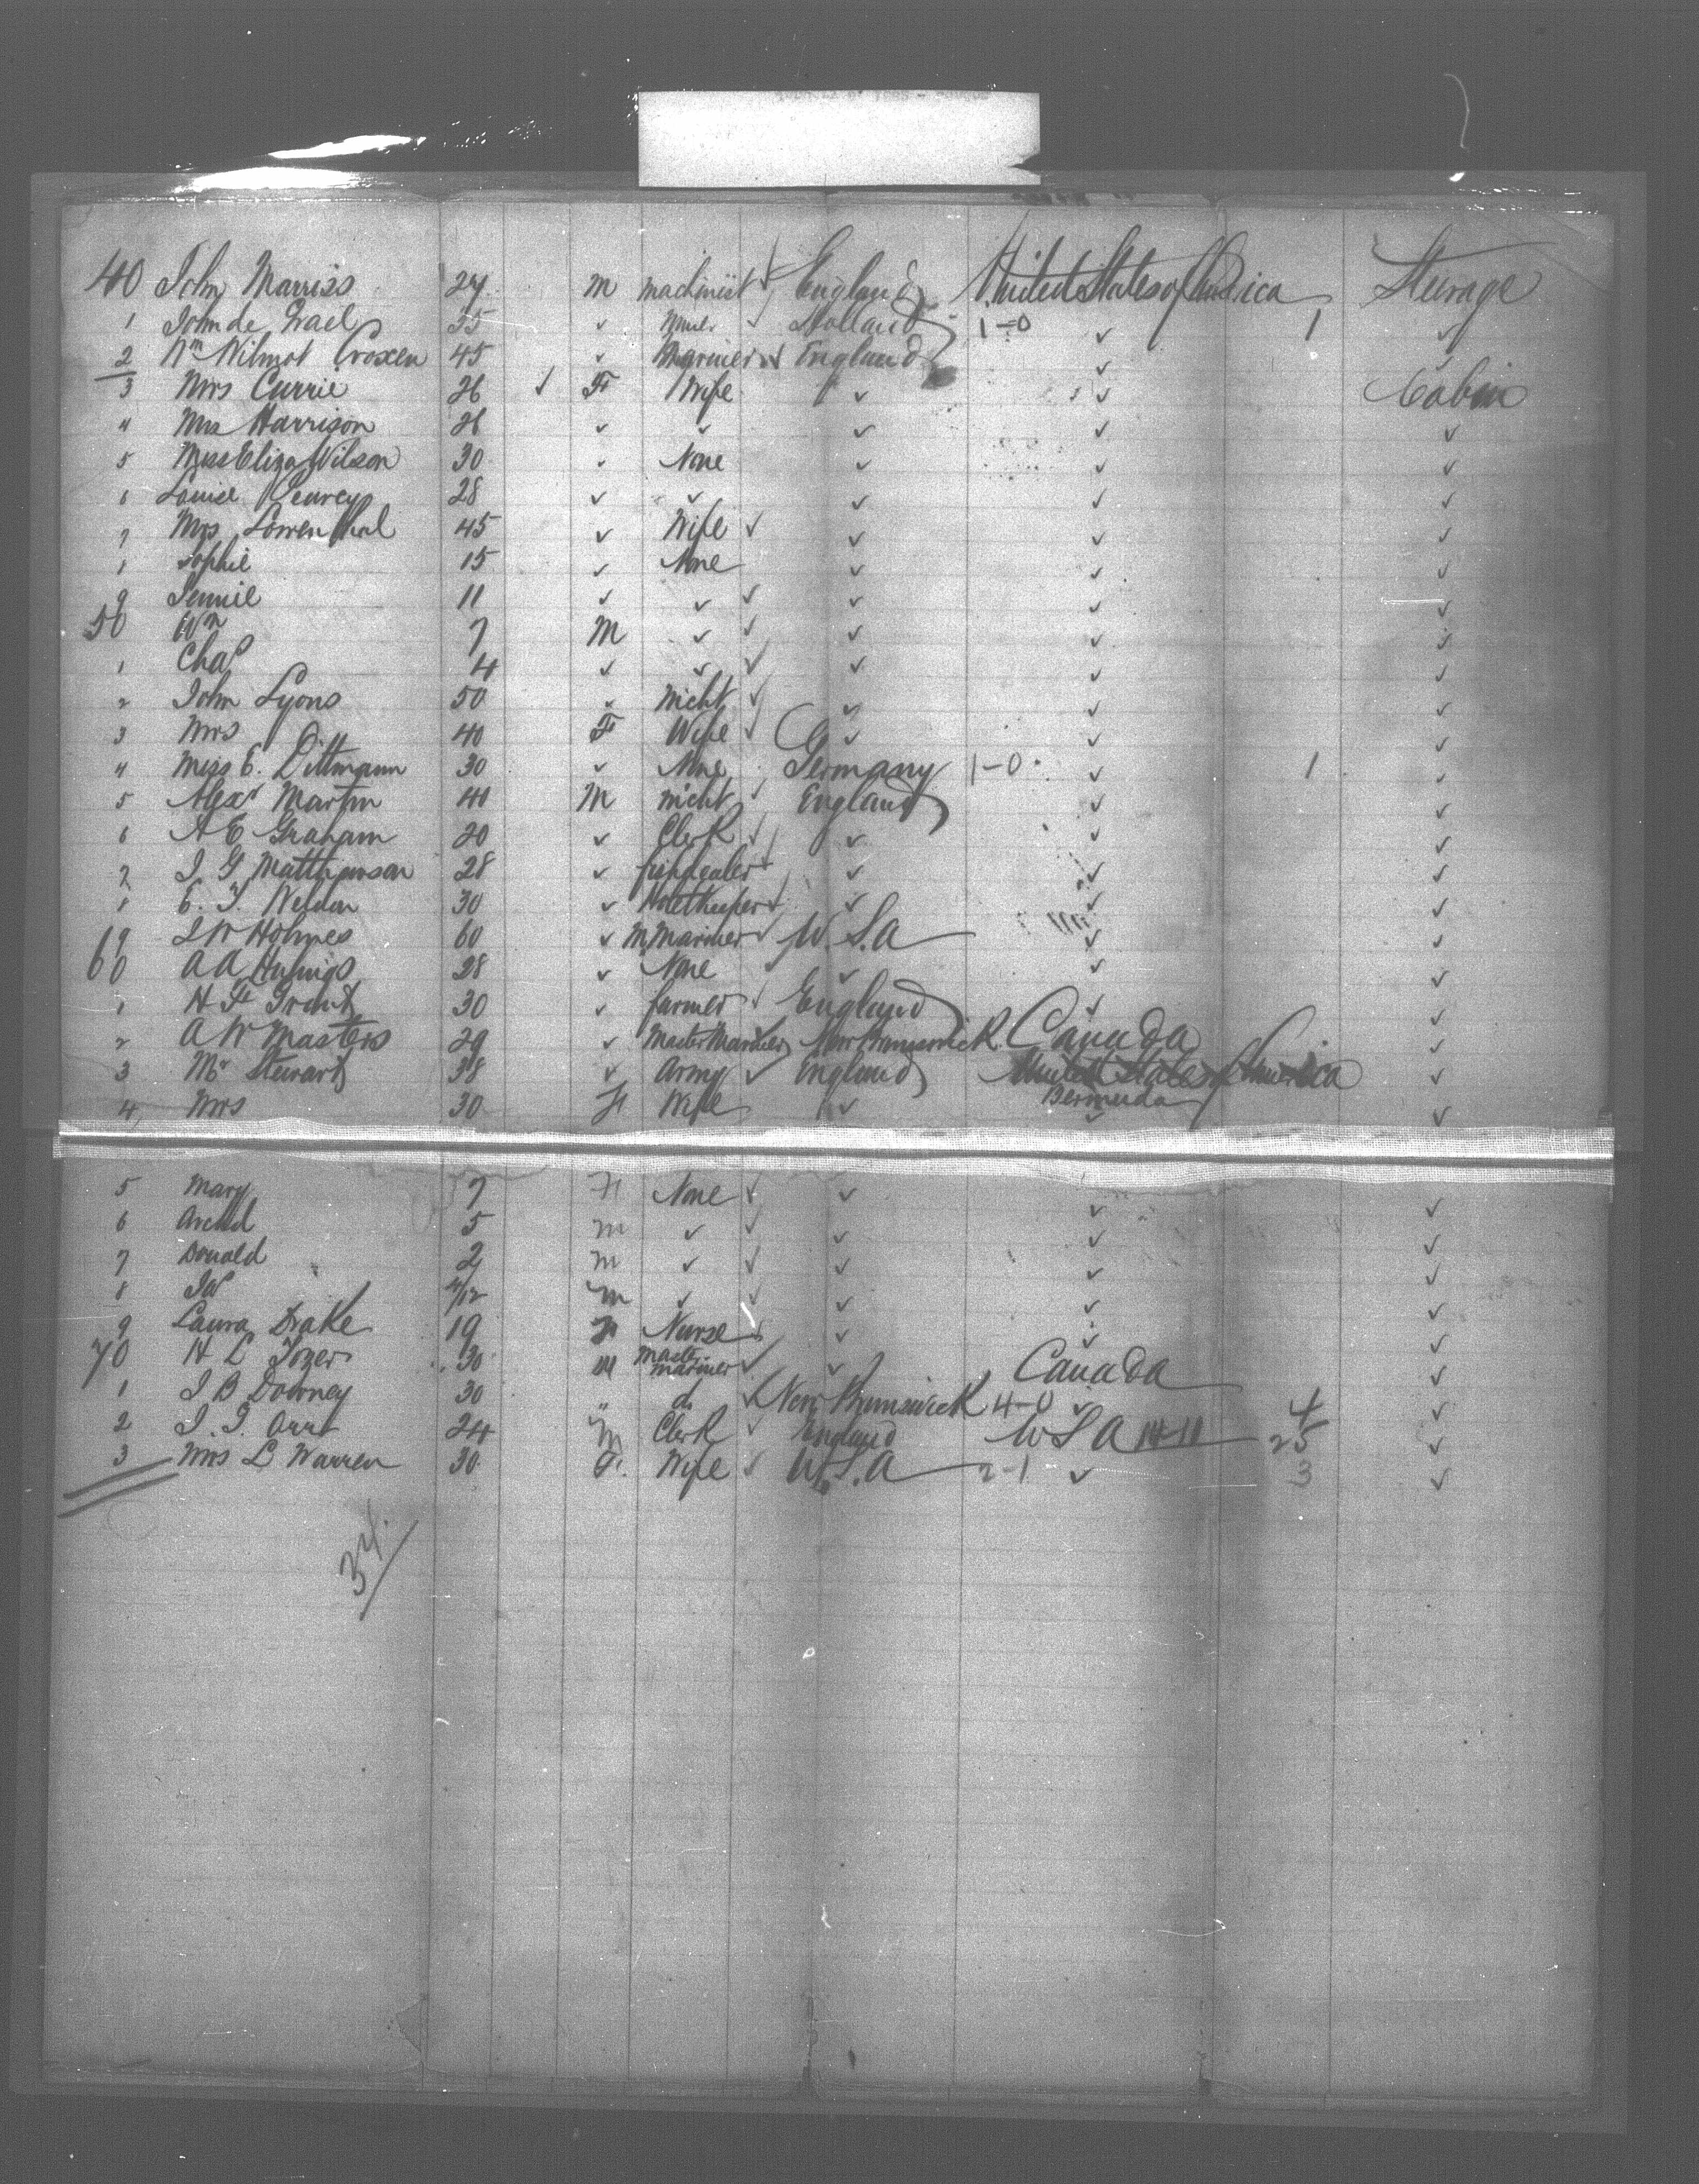 40 John Marriss 24 M machinist ✓ England United States of America Steerage
1 John de Grael 35 ✓ Miner ✓ Holland 1-0 ✓ 1 ✓
2 Wm Wilmot Croxen 45 ✓ Mariner ✓ England ✓ ✓
3 Mrs Currie 26 ✓ F Wife ✓ ✓ Cabin
4 Mrs Harrison 26 ✓ ✓ ✓ ✓ ✓
5 Miss Eliza Wilson 30 ✓ None ✓ ✓ ✓
6 Louise 28 ✓ ✓ ✓ ✓ ✓
7 Mrs Lowenthal 45 ✓ Wife ✓ ✓ ✓ ✓
Sophie 15 ✓ None ✓ ✓ ✓
9 Jennie 11 ✓ ✓ ✓ ✓ ✓ ✓
50 Wm 7 M ✓ ✓ ✓ ✓ ✓
1 Chas 4 ✓ ✓ ✓ ✓ ✓ ✓
2 John Lyons 50 ✓ Mcht ✓ ✓ ✓ ✓
3 Mrs 40 F Wife ✓ ✓ ✓ ✓
4 Miss E. Dittmann 30 ✓ None Germany 1-0 ✓ 1 ✓
5 Alexr Martin 41 M Mcht ✓ England ✓ ✓
6 A E Graham 20 ✓ Clerk ✓ ✓ ✓ ✓
7 J G Matthewson 28 ✓ fishdealer ✓ ✓ ✓ ✓
E. T. Weldon 30 ✓ Hotelkeeper ✓ ✓ ✓ ✓
9 J W Holmes 60 ✓ M Mariner ✓ U.S.A ✓ ✓
60 A A 28 ✓ None ✓ ✓ ✓
1 H F Grant 30 ✓ farmer ✓ England ✓ ✓
2 A W Masters 29 ✓ Master Mariner New Brunswick Canada ✓
3 Mr Stewart 38 ✓ Army ✓ England United States of America ✓
Bermuda
4 Mrs 30 F Wife ✓ ✓ ✓
5 Mary 7 F None ✓ ✓ ✓ ✓
6 Archd 5 m ✓ ✓ ✓ ✓ ✓
7 Donald 2 m ✓ ✓ ✓ ✓ ✓
8 4/12 m ✓ ✓ ✓ ✓ ✓
9 Laura Drake 19 F Nurse ✓ ✓ ✓ ✓
70 H L Tozer 30 M Master mariner ✓ ✓ Canada ✓
1 J B Downey 30 " do ✓ New Brunswick 4-0 ✓ 4 ✓
2 J. J. Orr 24 M Clerk ✓ England U S A 14-11 25 ✓
3 Mrs L Warren 30 F. Wife ✓ U.S.A 2-1 ✓ 3 ✓
34